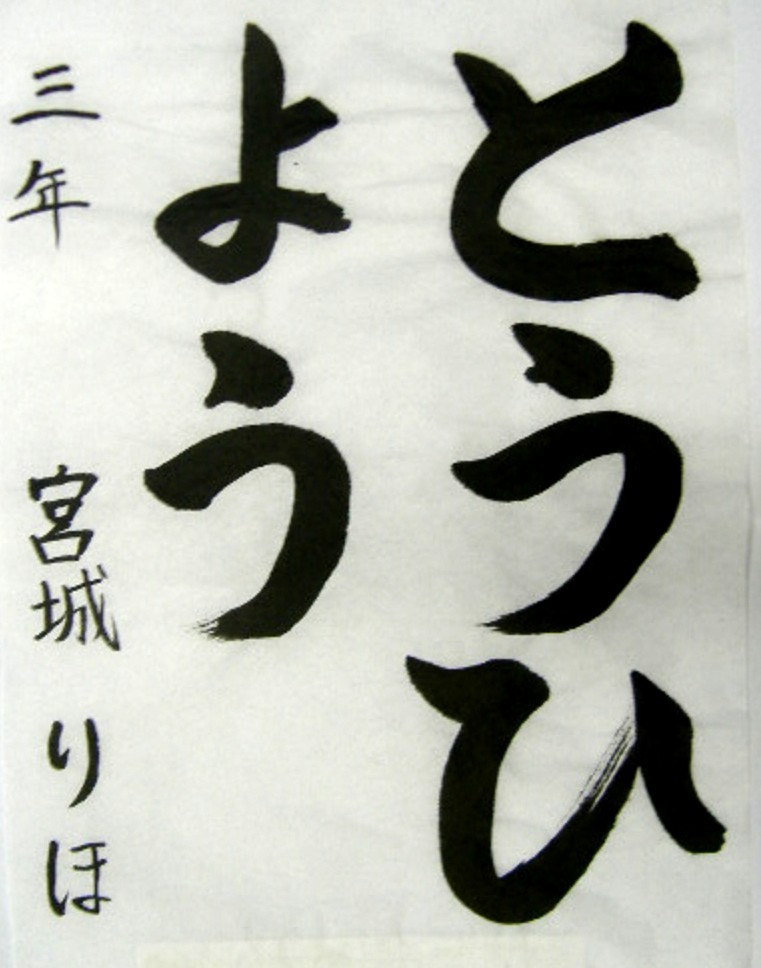 とうひ
よう
三年 宮城 りほ